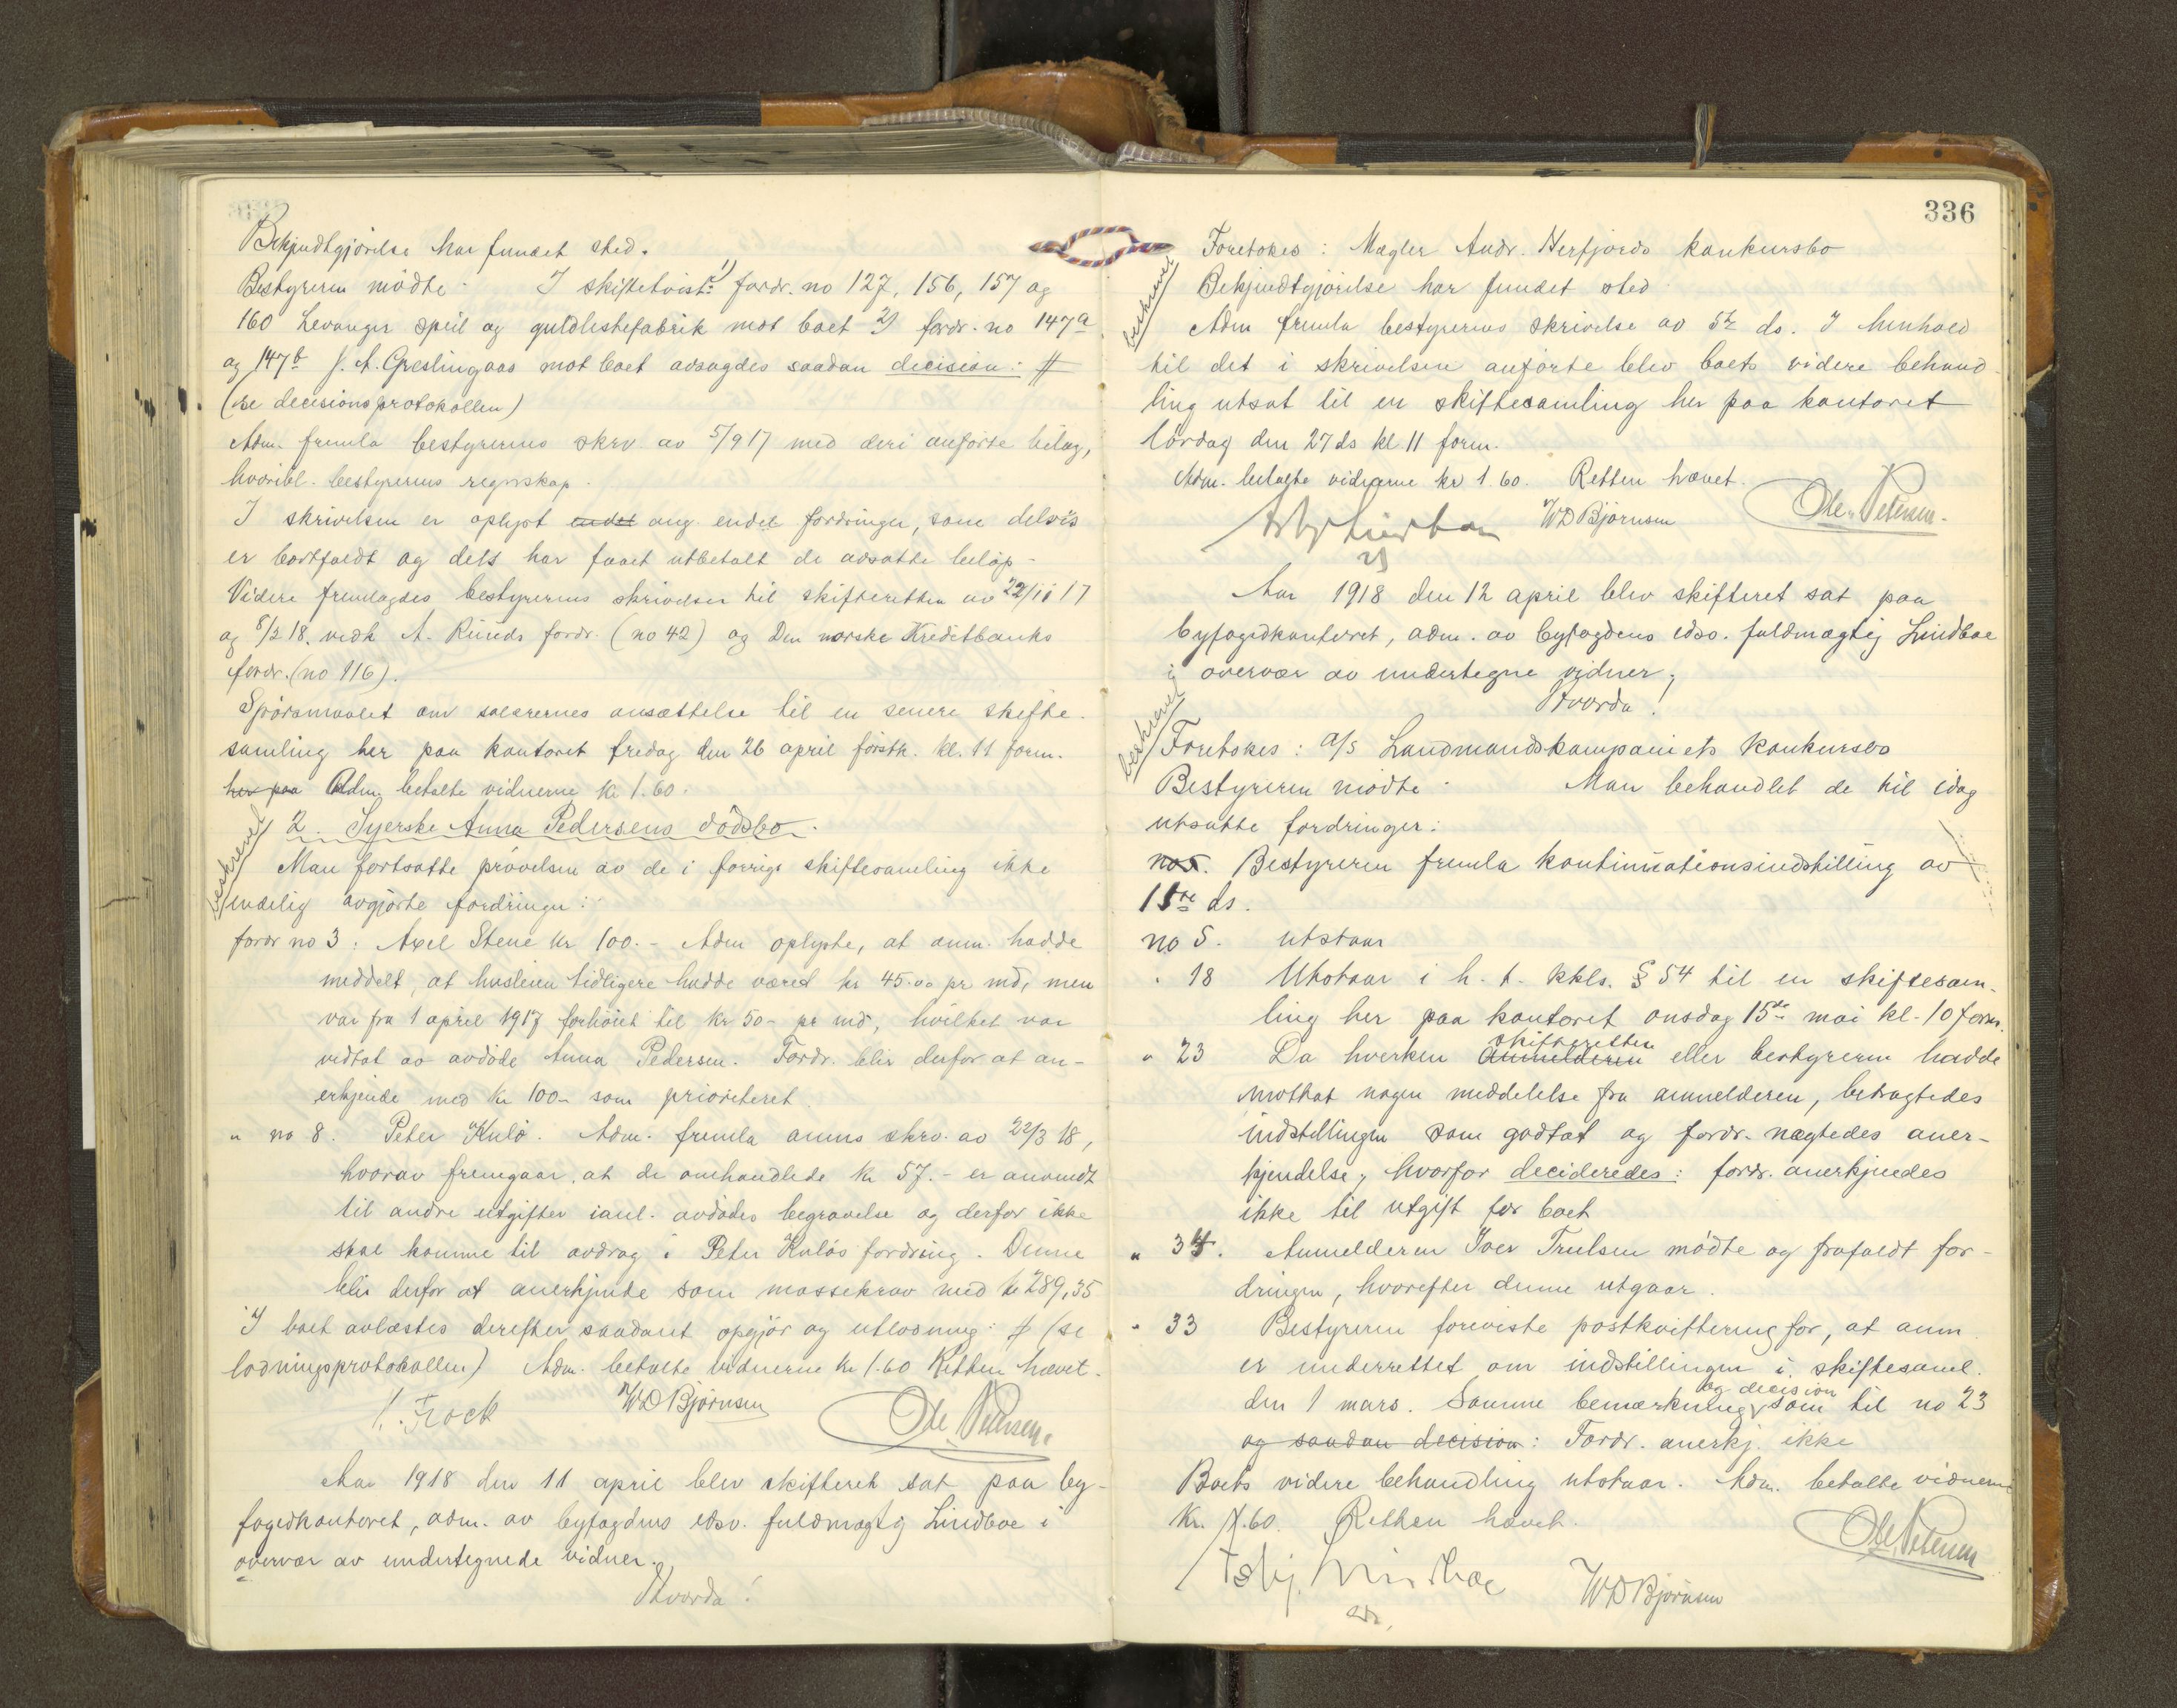 Bekjendtgjörelse har fundet sted.
Bestyreren mödte. I skiftetvist: 1) fordr. no 127, 156, 157 og
160 Levanger speil og guldlistefabrik mot boet 2) fordr. no 147a
og 147b J. A. Greslingaas mot boet avsagdes saadan decision: #
(se decisionsprotokollen)
Adm. fremla bestyrerens skrv. av 5/9 17 med deri anförte bilag,
hvoribl. bestyrerens regnskap.
I skrivelsen er oplyst endel ang. endel fordringer, som delvis
er bortfaldt og dels har faaet utbetalt de avsatte belöp.
Videre fremlagdes bestyrerens skrivelser til skifteretten av 22/11 17
og 8/2 18. vedk A. Ruuds fordr. (no 42) og Den norske Kreditbanks
fordr. (no 116).
Spörsmaalet om salærernes ansættelse til en senere skifte-
samling her paa kontoret fredag den 26 april förstk. kl. 11 form.
her paa Adm. betalte vidnerne kr 1.60.
beskrevet
2. Syerske Anna Pedersens dödsbo.
Man fortsatte prövelsen av de i forrige skiftesamling ikke
endelig avgjörte fordringer:
fordr no 3: Axel Stene kr 100.- Adm oplyste, at anm. hadde
meddelt, at husleien tidligere hadde været kr 45.00 pr md, men
var fra 1 april 1917 forhöiet til kr 50- pr md, hvilket var
vedtat av avdöde Anna Pedersen. Fordr. blir derfor at an-
erkjende med kr 100- som prioriteret.
" no 8. Peter Kulö. Adm. fremla anms skrv. av 22/3 18,
hvorav fremgaar, at de omhandlede kr 57.- er anvendt
til andre utgifter ianl. avdödes begravelse og derfor ikke
skal komme til avdrag i Peter Kulös fordring. Denne
blir derfor at anerkjende som massekrav med kr 289,35
I boet avlæstes derefter saadant opgjör og utlodning: # (se
lodningsprotokollen) Adm. betalte vidnerne kr 1.60 Retten hævet.
Frock WD Björnsen Ole Petersen.
Aar 1918 den 11 april blev skifteret sat paa by-
fogedkontoret, adm. av byfogdens edsv. fuldmægtig Lindboe i
overvær av undertegnede vidner.
Hvorda!
336
beskrevet
Foretokes: Mægler Andr. Herfjords konkursbo
Bekjendtgjörelse har fundet sted
Adm fremla bestyrerens skrivelse av 5te ds. I henhold
til det i skrivelsen anförte blev boets videre behand-
ling utsat til en skiftesamling her paa kontoret
lördag den 27 ds kl. 11 form.
Adm. betalte vidnerne kr 1.60. Retten hævet.
Asbj Lindboe WD Björnsen Ole Petersen.
Aar 1918 den 12 april blev skifteret sat paa
byfogedkontoret, adm. av byfogdens edsv. fuldmægtig Lindboe
i overvær av undertegne vidner;
Hvorda!
beskrevet
Foretokes: A/S Landmandskompaniets konkursbo
Bestyreren mödte. Man behandlet de til idag
utsatte fordringer:
no 5. Bestyreren fremla kontinuationsindstilling av
11te ds.
no 5. utstaar
" 18 Utstaar i h. t. kkls. § 54 til en skiftesam-
ling her paa kontoret onsdag 15de mai kl. 10 form.
" 23 Da hverken Anmelderen skifteretten eller bestyreren hadde
mottat nogen meddelelse fra anmelderen, betragtedes
indstillingen som godtat og fordr. nægtedes aner-
kjendelse, hvorfor decideredes: fordr. anerkjendes
ikke til utgift for boet
" 34. Anmelderen Iver Trulsen mödte og frafaldt for-
dringen, hvorefter denne utgaar.
" 33 Bestyreren foreviste postkvittering for, at anm
er underrettet om indstillingen i skiftesaml.
den 1 mars. Samme bemærkning og decision som til no 23
og saadan decision: Fordr. anerkj. ikke
Boets videre behandling utstaar. Adm. betalte vidnerne
kr. 1.60. Retten hævet. Ole Petersen
Asbj. Lindboe WD Björnsen